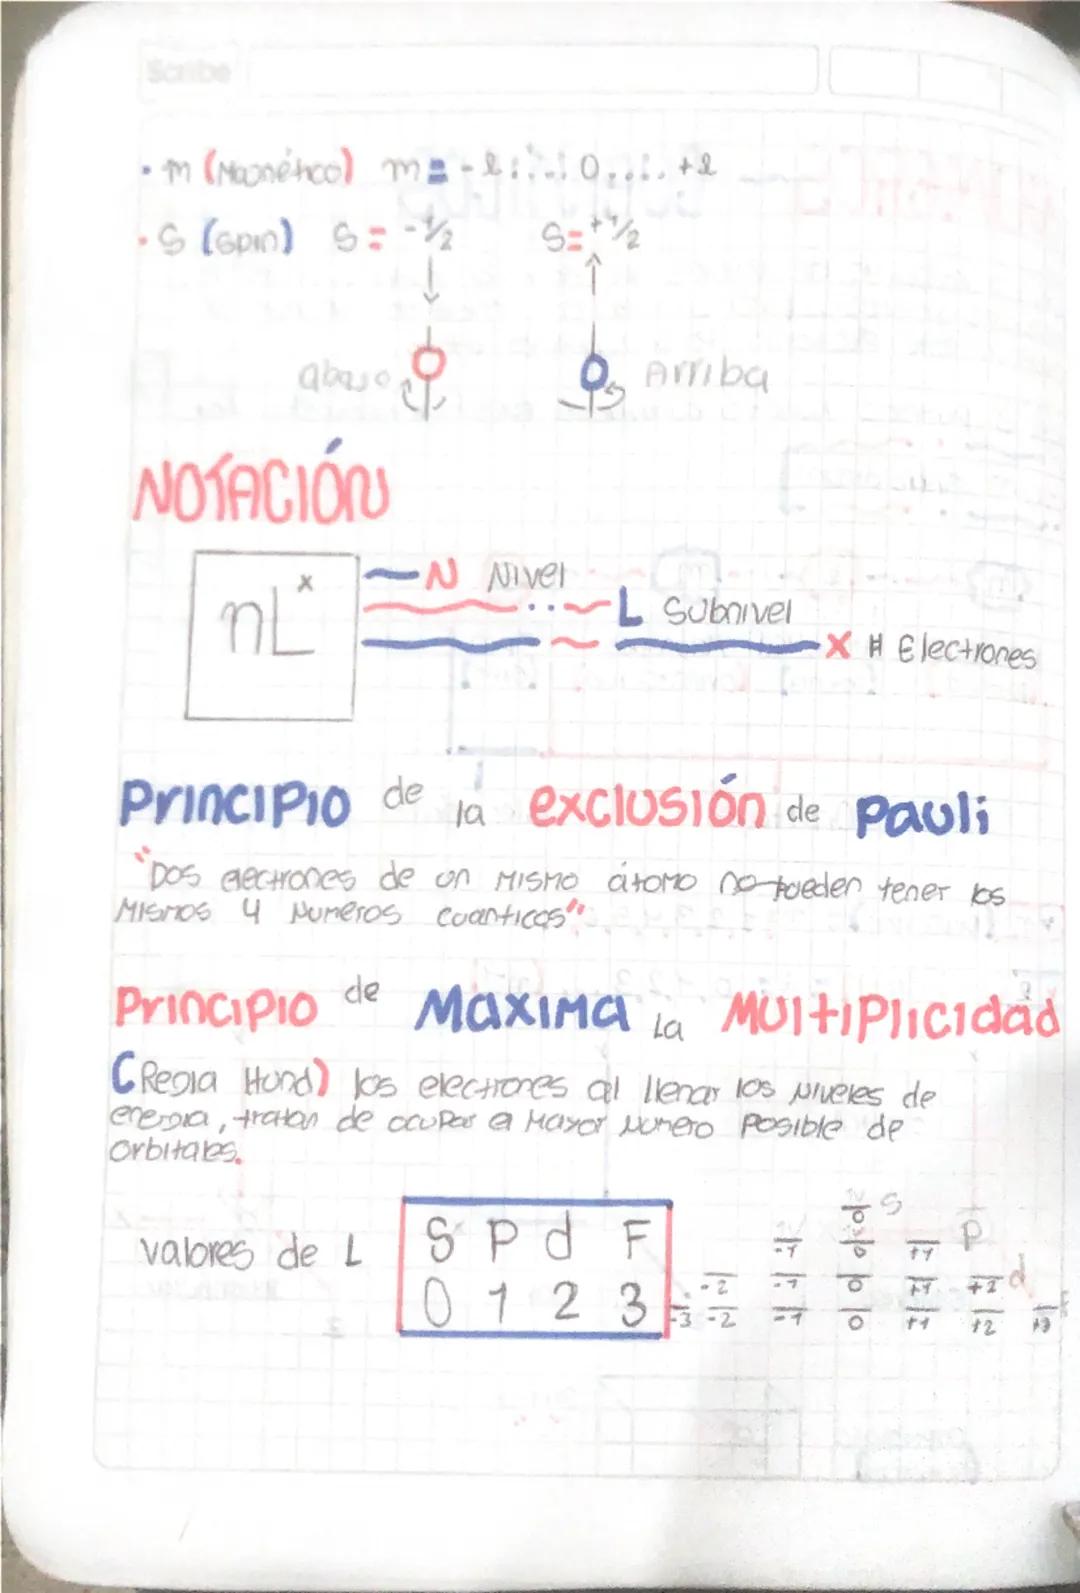 Scribe
• m (Magnético) m = -l ... 0 ... +l
• S (spin) S = -1/2 S= +1/2
abajo Arriba
NOTACIÓN
nL^x
N Nivel
L Subnivel
X # Electrones
Principio de la exclusión de Pauli
"Dos electrones de un mismo átomo no pueden tener los
mismos 4 numeros cuanticos"
Principio de Maxima la Multiplicidad
(Regla Hund) los electrones al llenar los niveles de
energia, tratan de ocupar el mayor numero posible de
orbitales.
valores de L
S P d F
0 1 2 3
0 S
-1 0 +1 P
-2 -1 0 +1 +2 d
-3 -2 -1 0 +1 +2 +3 f